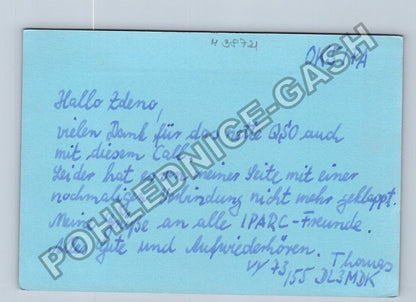 H 38721
Hallo Zdeno,
vielen Dank für das nette QSO auch
mit diesem Call
Leider hat es von meiner Seite mit einer
nochmaligen Verbindung nicht mehr geklappt.
Meine Grüße an alle IPARC-Freunde.
Alles Gute und Aufwiederhören. Thomas
vy 73/55 DL3MDK
POHLEDNICE-GASH